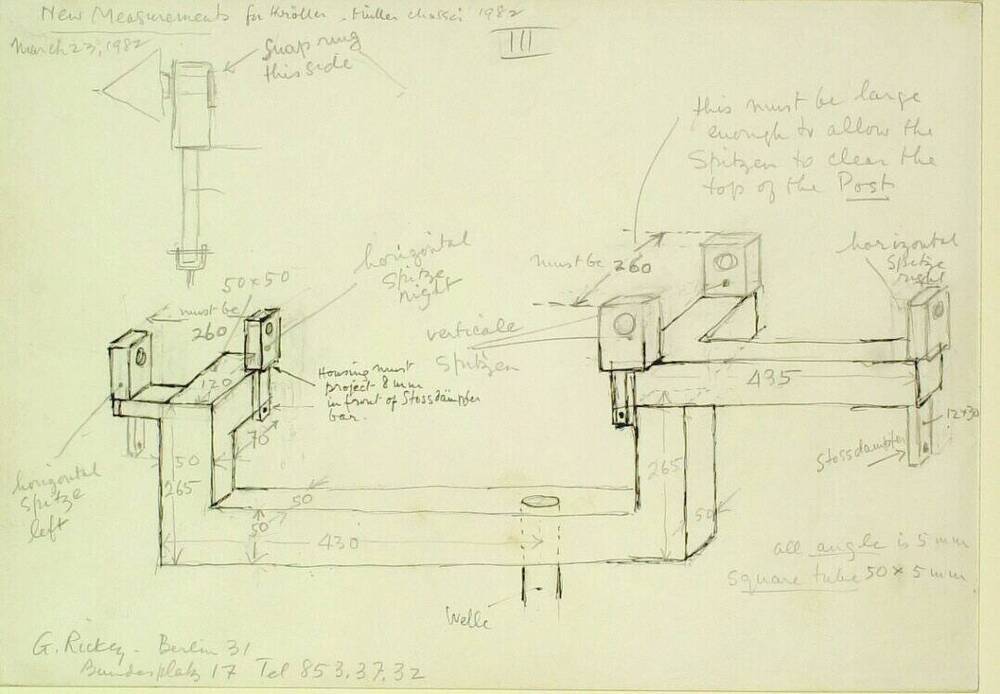 New Measurements for Kröller-Müller chassis 1982
March 23, 1982
III
Snap ring
this side
this must be large
enough to allow the
Spitzen to clear the
top of the Post
horizontal
Spitze
right
50×50
must be
260
must be 260
horizontal
Spitze
right
verticale
Spitzen
Housing must
project 8 mm
in front of Stossdämpfer
bar.
120
70
435
12×30
Stossdämpfer
horizontal
Spitze
left
50
265
50
50
430
265
50
Welle
all angle is 5 mm
square tube 50×5 mm
G. Rickey - Berlin 31
Bundesplatz 17 Tel 853.37.32